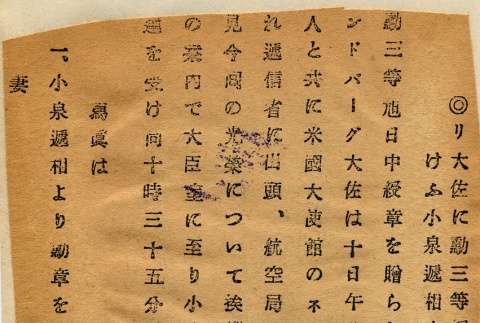 ◎リ大佐に勳三等
けふ小泉遞相
勳三等旭日中綬章を贈ら
ンドバーグ大佐は十日午
人と共に米國大使館のネ
れ遞信省に出頭、航空局
見今囘の光榮について挨
の案内で大臣室に至り小
を受け同十時三十五分
寫眞は
一、小泉遞相より勳章を
妻